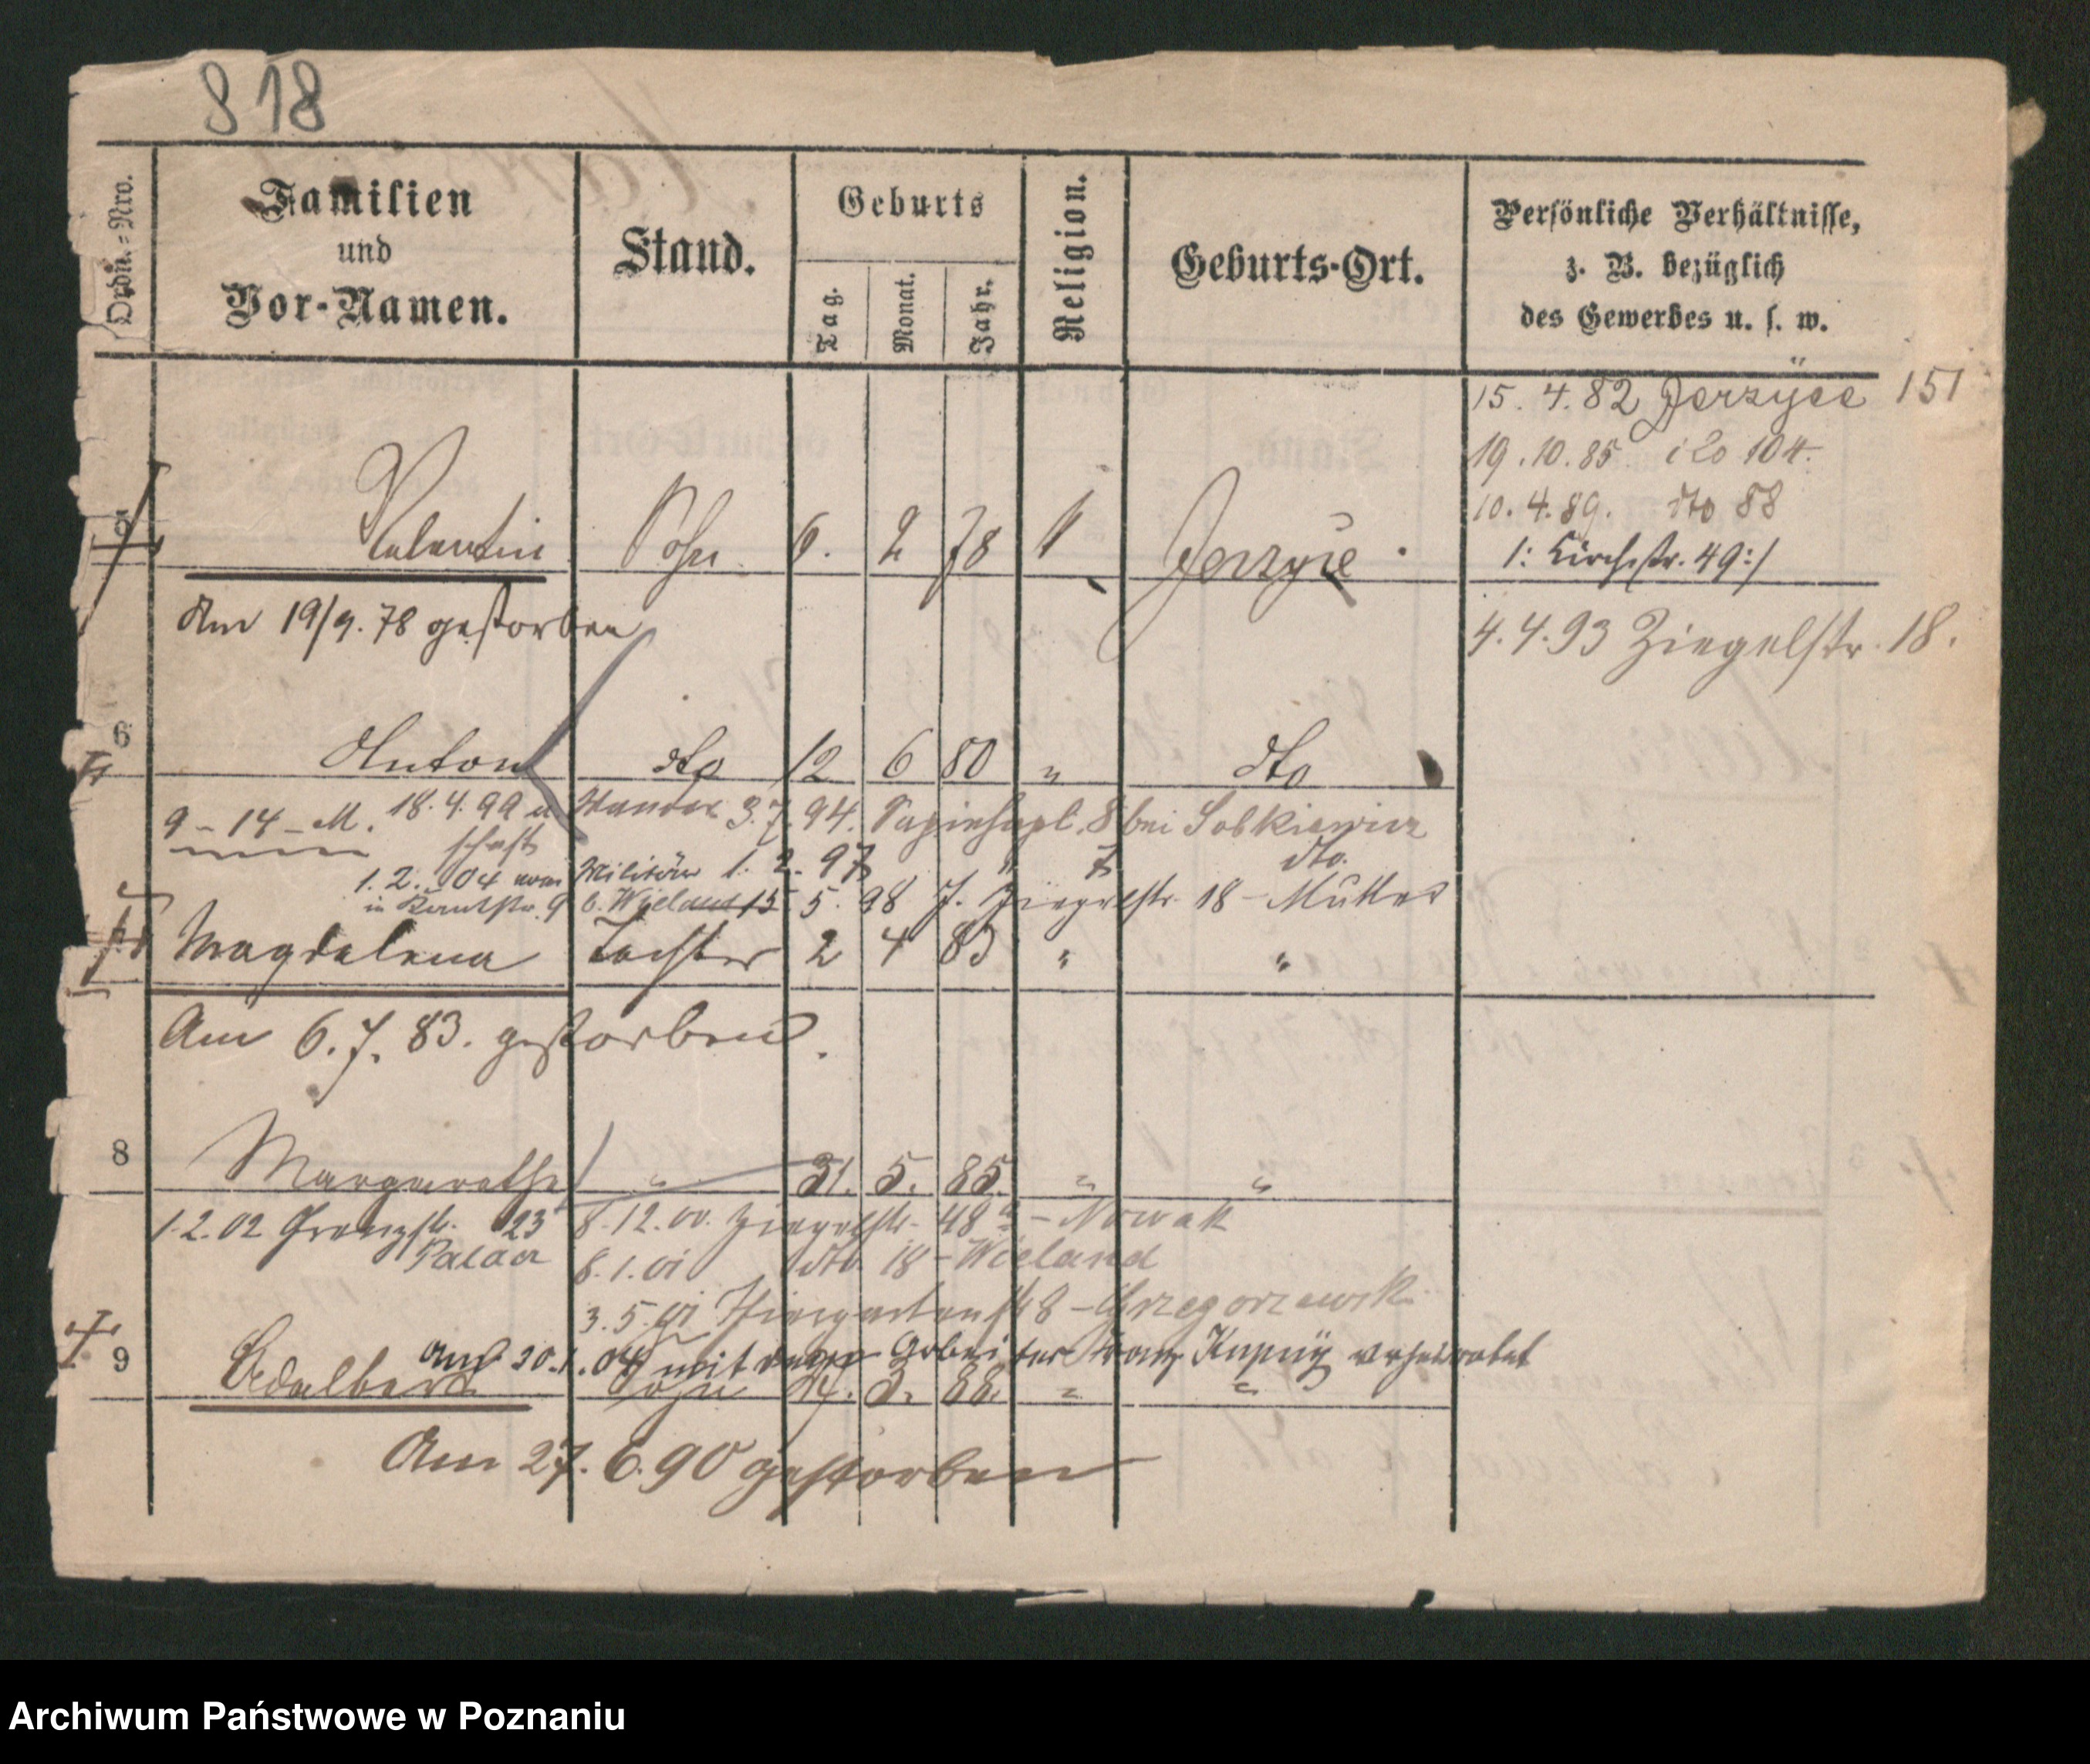 818
Ordn.-Nro.
Familien
und
Vor-Namen.
Stand.
Geburts
Tag.
Monat.
Jahr.
Religion.
Geburts-Ort.
Persönliche Verhältnisse,
z. B. bezüglich
des Gewerbes u. s. w.
15. 4. 82 Jerzÿce 151
19. 10. 85 104.
10. 4. 89. dto 88
Valentin Sohn 6. 2 78 k Jerzyce
/: Kirchstr. 49 :/
Am 19/9. 78 gestorben
4. 4. 93 Ziegelstr. 18.
6 Anton dto 12 6 80 " dto
9 - 14 - M. 18. 4. 99 3. 7. 94. Sapiehapl. 8 bei Sobkiewicz
schaft
1. 2. 04 vom Militär 1. 2. 97 " 7 dto.
in Kantstr. 9 b. Wieland 15. 5. 98 J. Ziegelstr. 18 - Mutter
Magdalena Tochter 2 4 83 " "
Am 6. 7. 83. gestorben.
8 Margarethe " 31. 5. 85. " "
1. 2. 02 Grenzstr. 23 8. 12. 00. Ziegelstr. 48a - Nowak
8. 1. 01 dto 18 - Wieland
3. 5. 01 Thiergartenstr 8 -
9 Adalbert Sohn 24. 3. 88. " "
am 30. 1. 04 mit dem Arbeiter Franz verheiratet
Am 27. 6. 90 gestorben
Archiwum Państwowe w Poznaniu